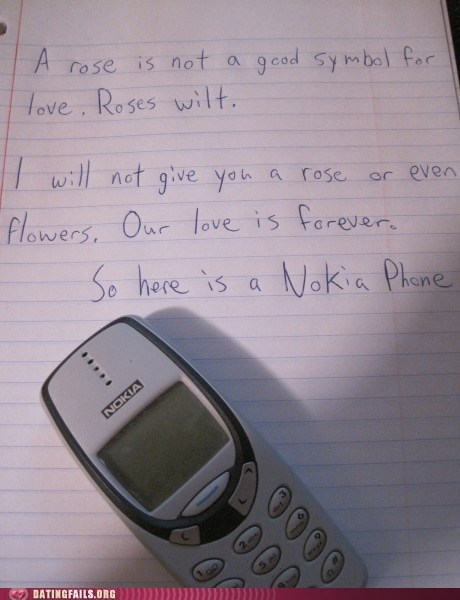 A rose is not a good symbol for
love. Roses wilt.
I will not give you a rose or even
flowers. Our love is forever.
So here is a Nokia Phone
NOKIA
C
1
2
3
5
6
9
DATINGFAILS.ORG